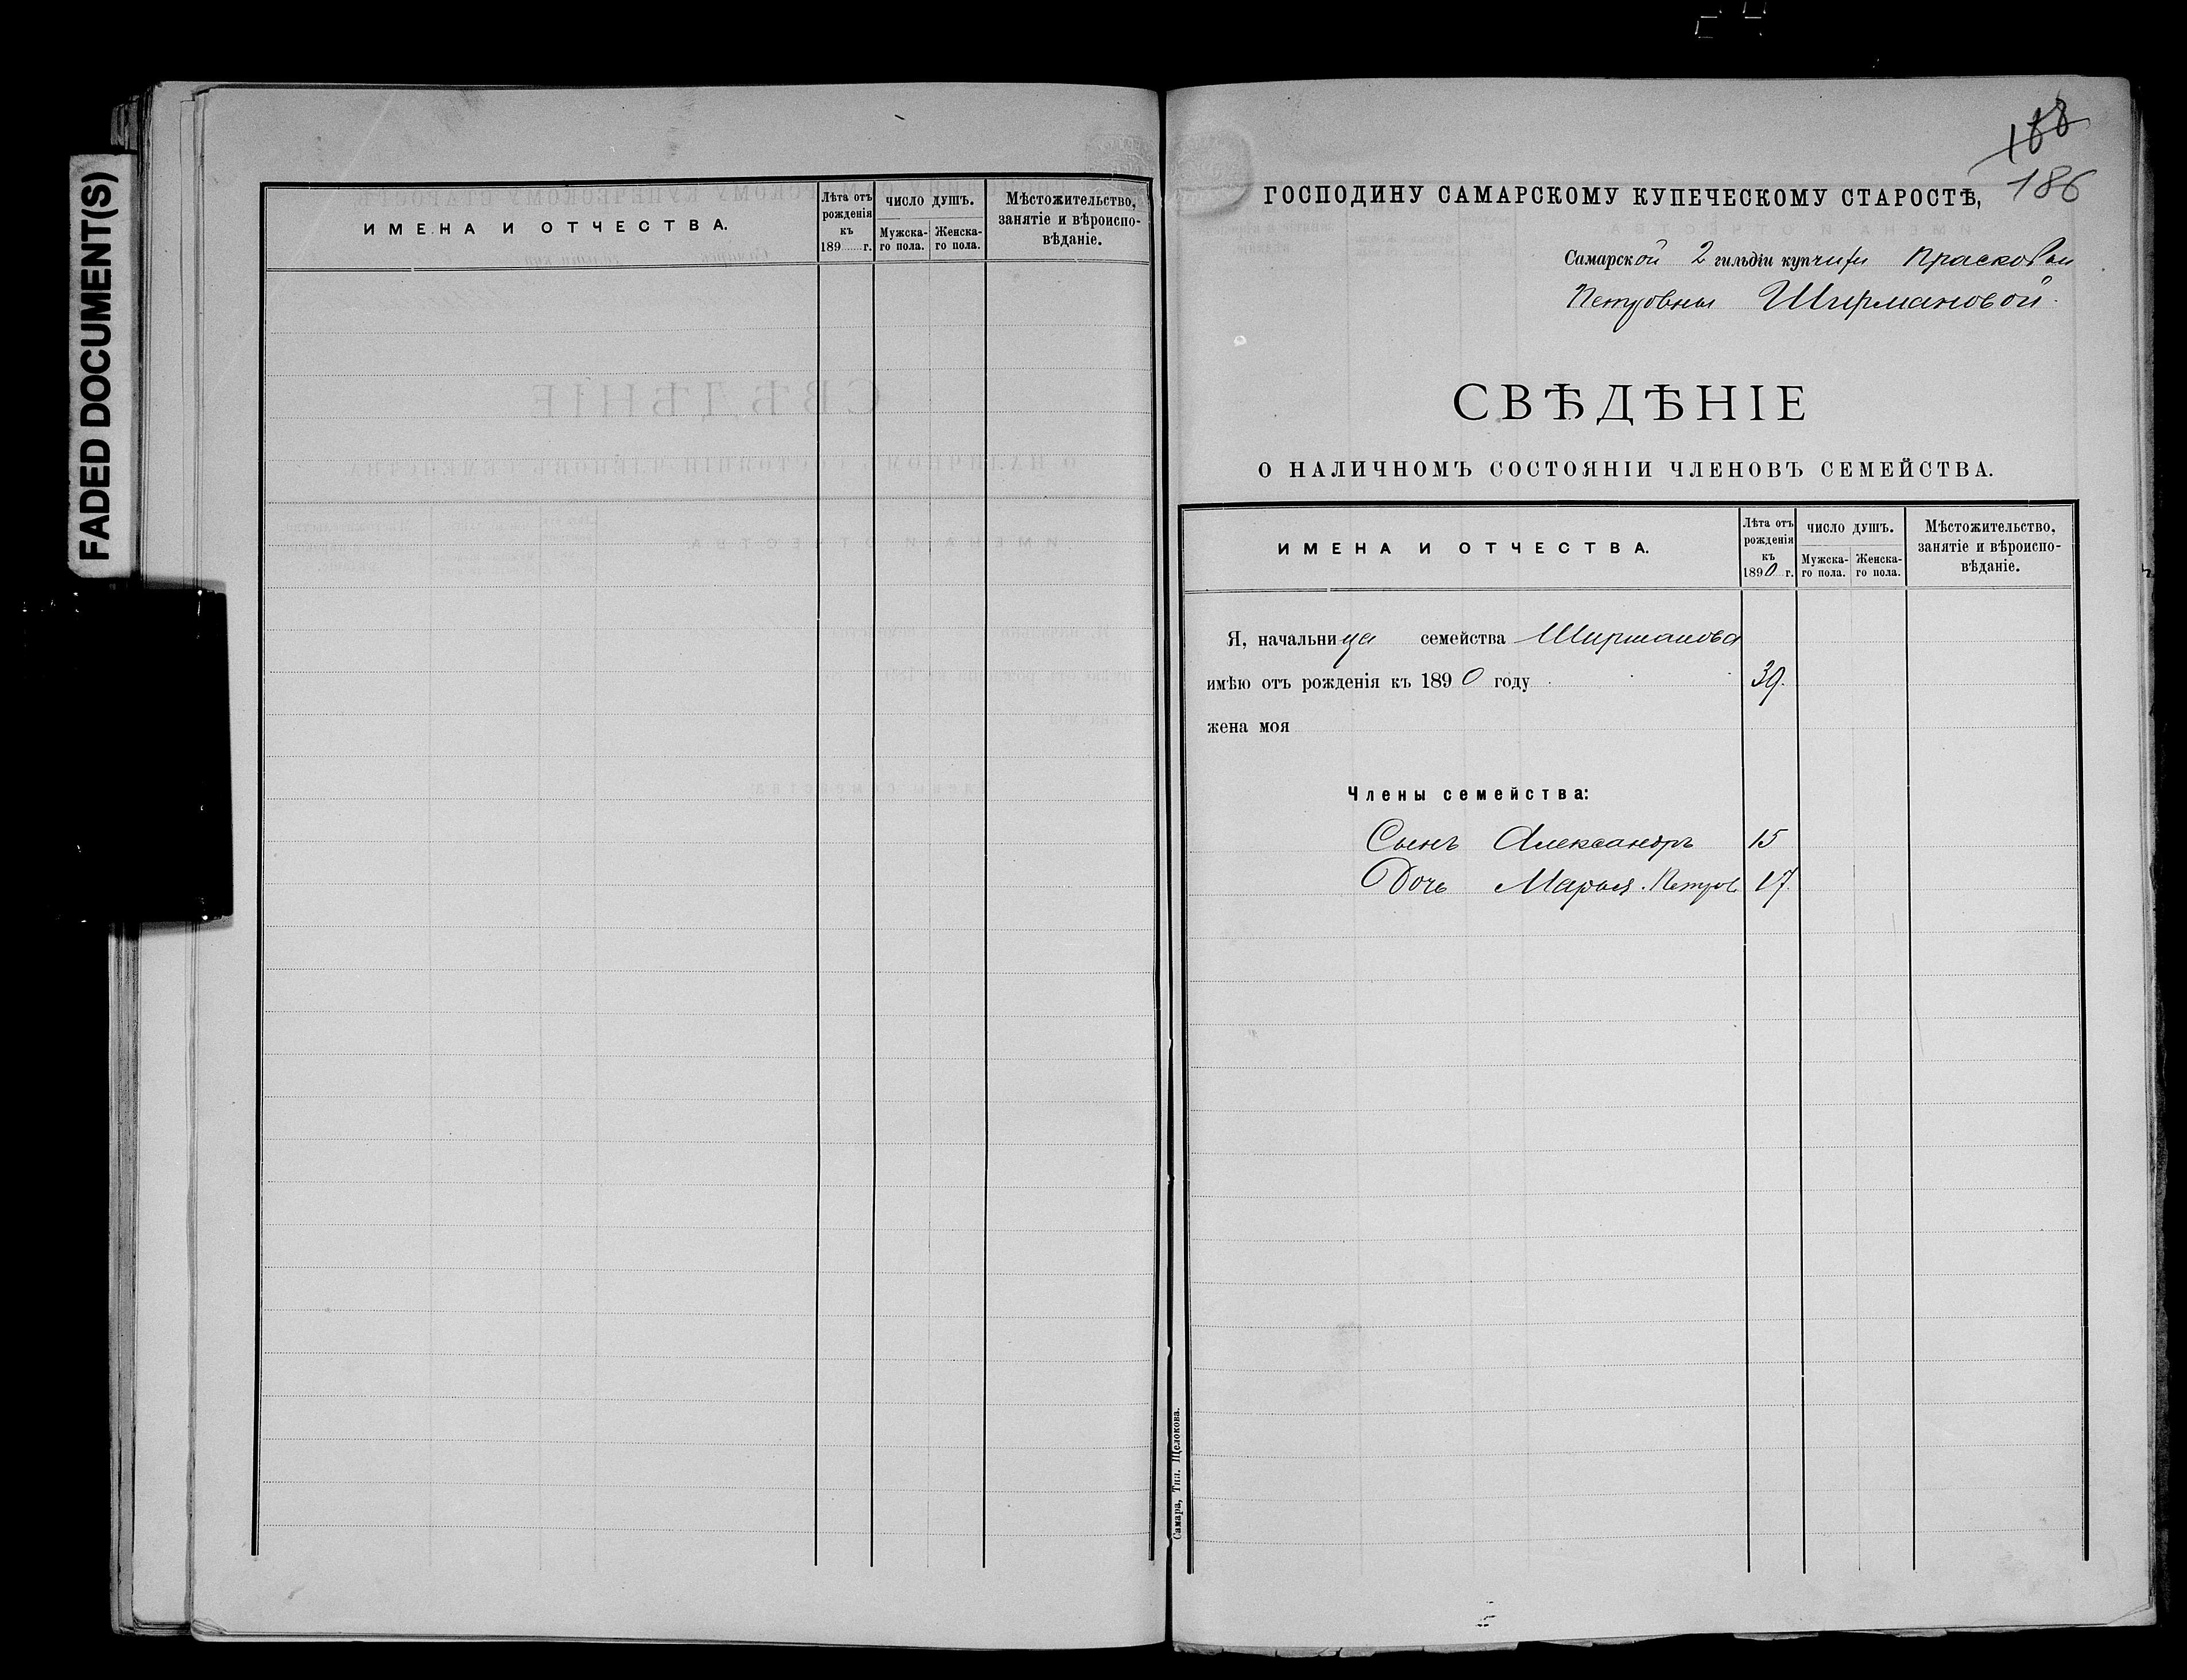 FADED DOCUMENT(S)
ИМЕНА И ОТЧЕСТВА.
Лѣта отъ рожденія къ 189 г.
ЧИСЛО ДУШЪ.
Мужска-
го пола.
Женска-
го пола.
Мѣстожительство,
занятіе и вѣроиспо-
вѣданіе.
188
186
ГОСПОДИНУ САМАРСКОМУ КУПЕЧЕСКОМУ СТАРОСТѢ,
Самарской 2 гильдіи купчихи Прасковьи
Петровны Ширмановой.
СВѢДѢНІЕ
О НАЛИЧНОМЪ СОСТОЯНІИ ЧЛЕНОВЪ СЕМЕЙСТВА.
ИМЕНА И ОТЧЕСТВА.
Лѣта отъ
рожденія
къ
1890 г.
ЧИСЛО ДУШЪ.
Мужска-
го пола.
Женска-
го пола.
Мѣстожительство,
занятіе и вѣроиспо-
вѣданіе.
Я, начальница семейства Ширманова
имѣю отъ рожденія къ 1890 году 39.
жена моя
Члены семейства:
Сынъ Александръ 15
Дочь Марья Петров 17.
Самара, Тип. Щелокова.